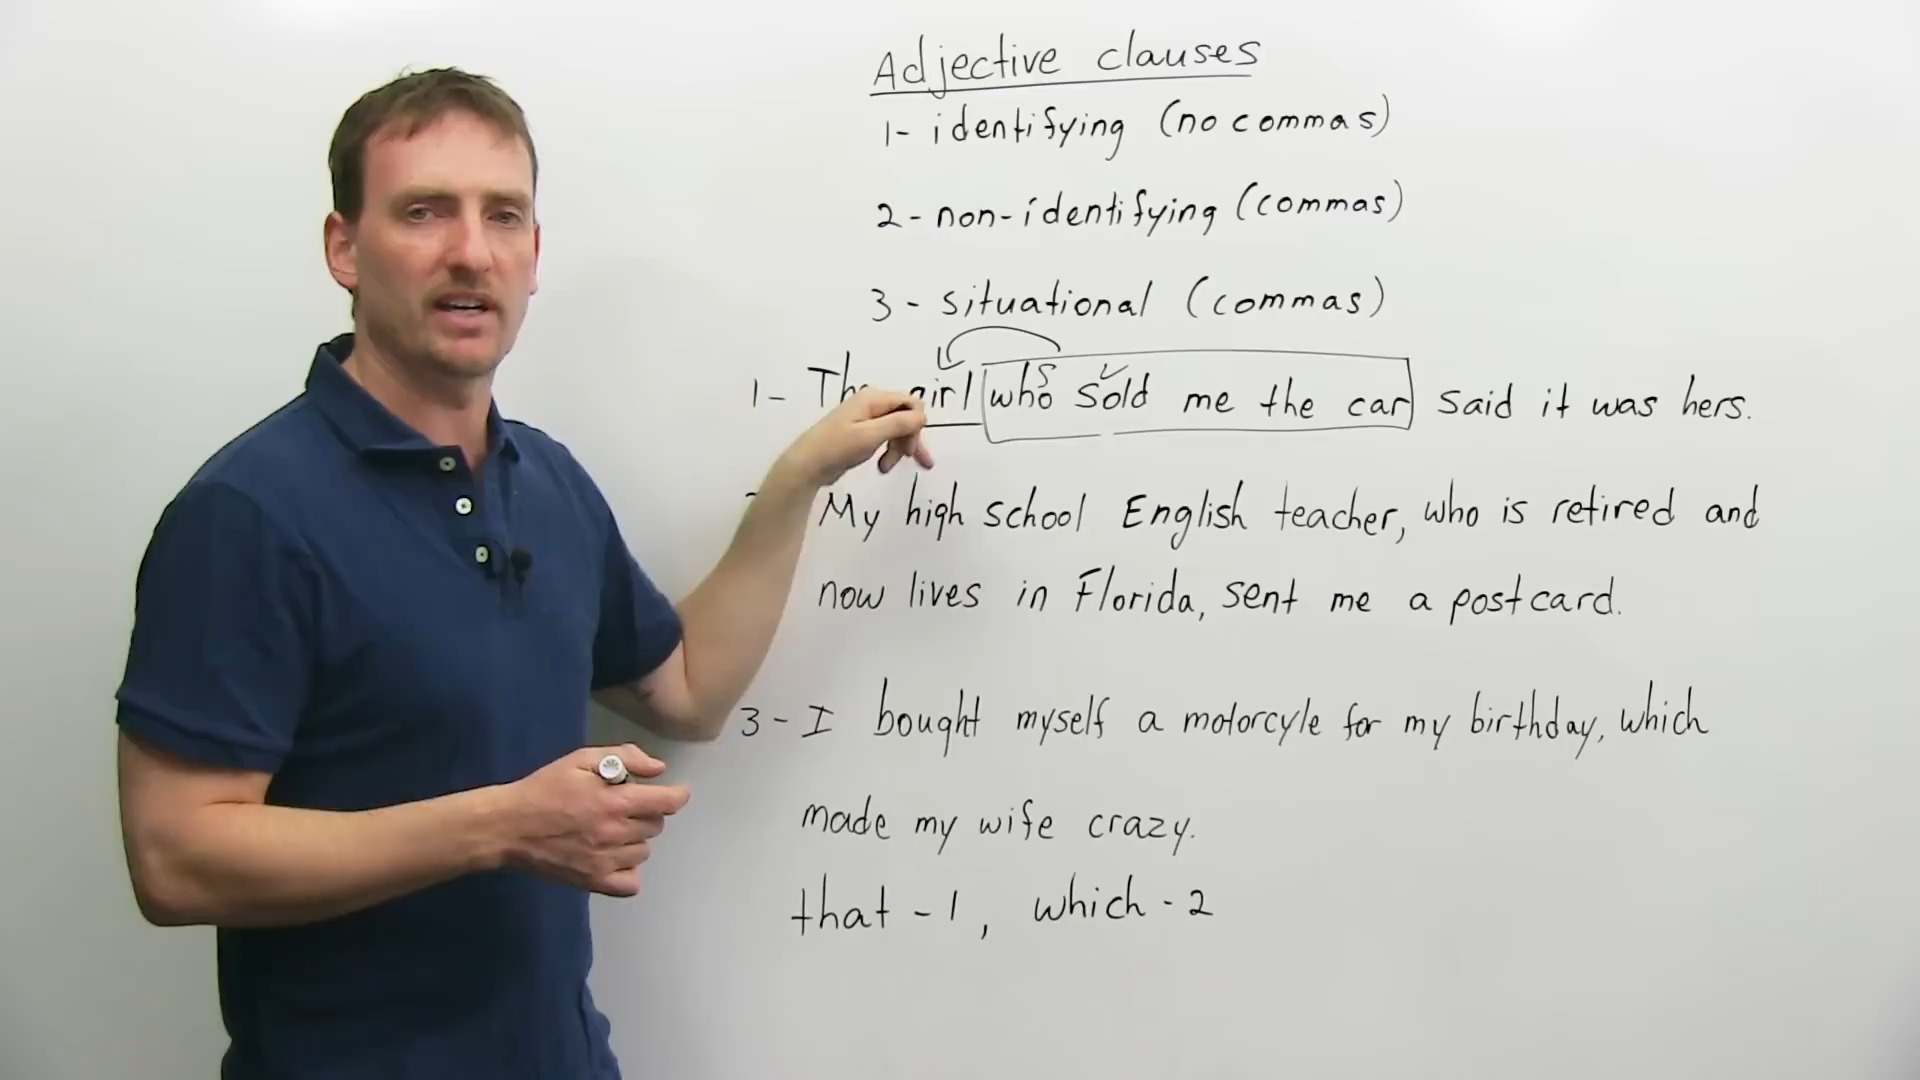 Adjective clauses
1- identifying (no commas)
2- non-identifying (commas)
3- situational (commas)
1- girl who sold me the car said it was hers.
S V
My high school English teacher, who is retired and
now lives in Florida, sent me a postcard.
3- I bought myself a motorcyle for my birthday, which
made my wife crazy.
that -1, which -2